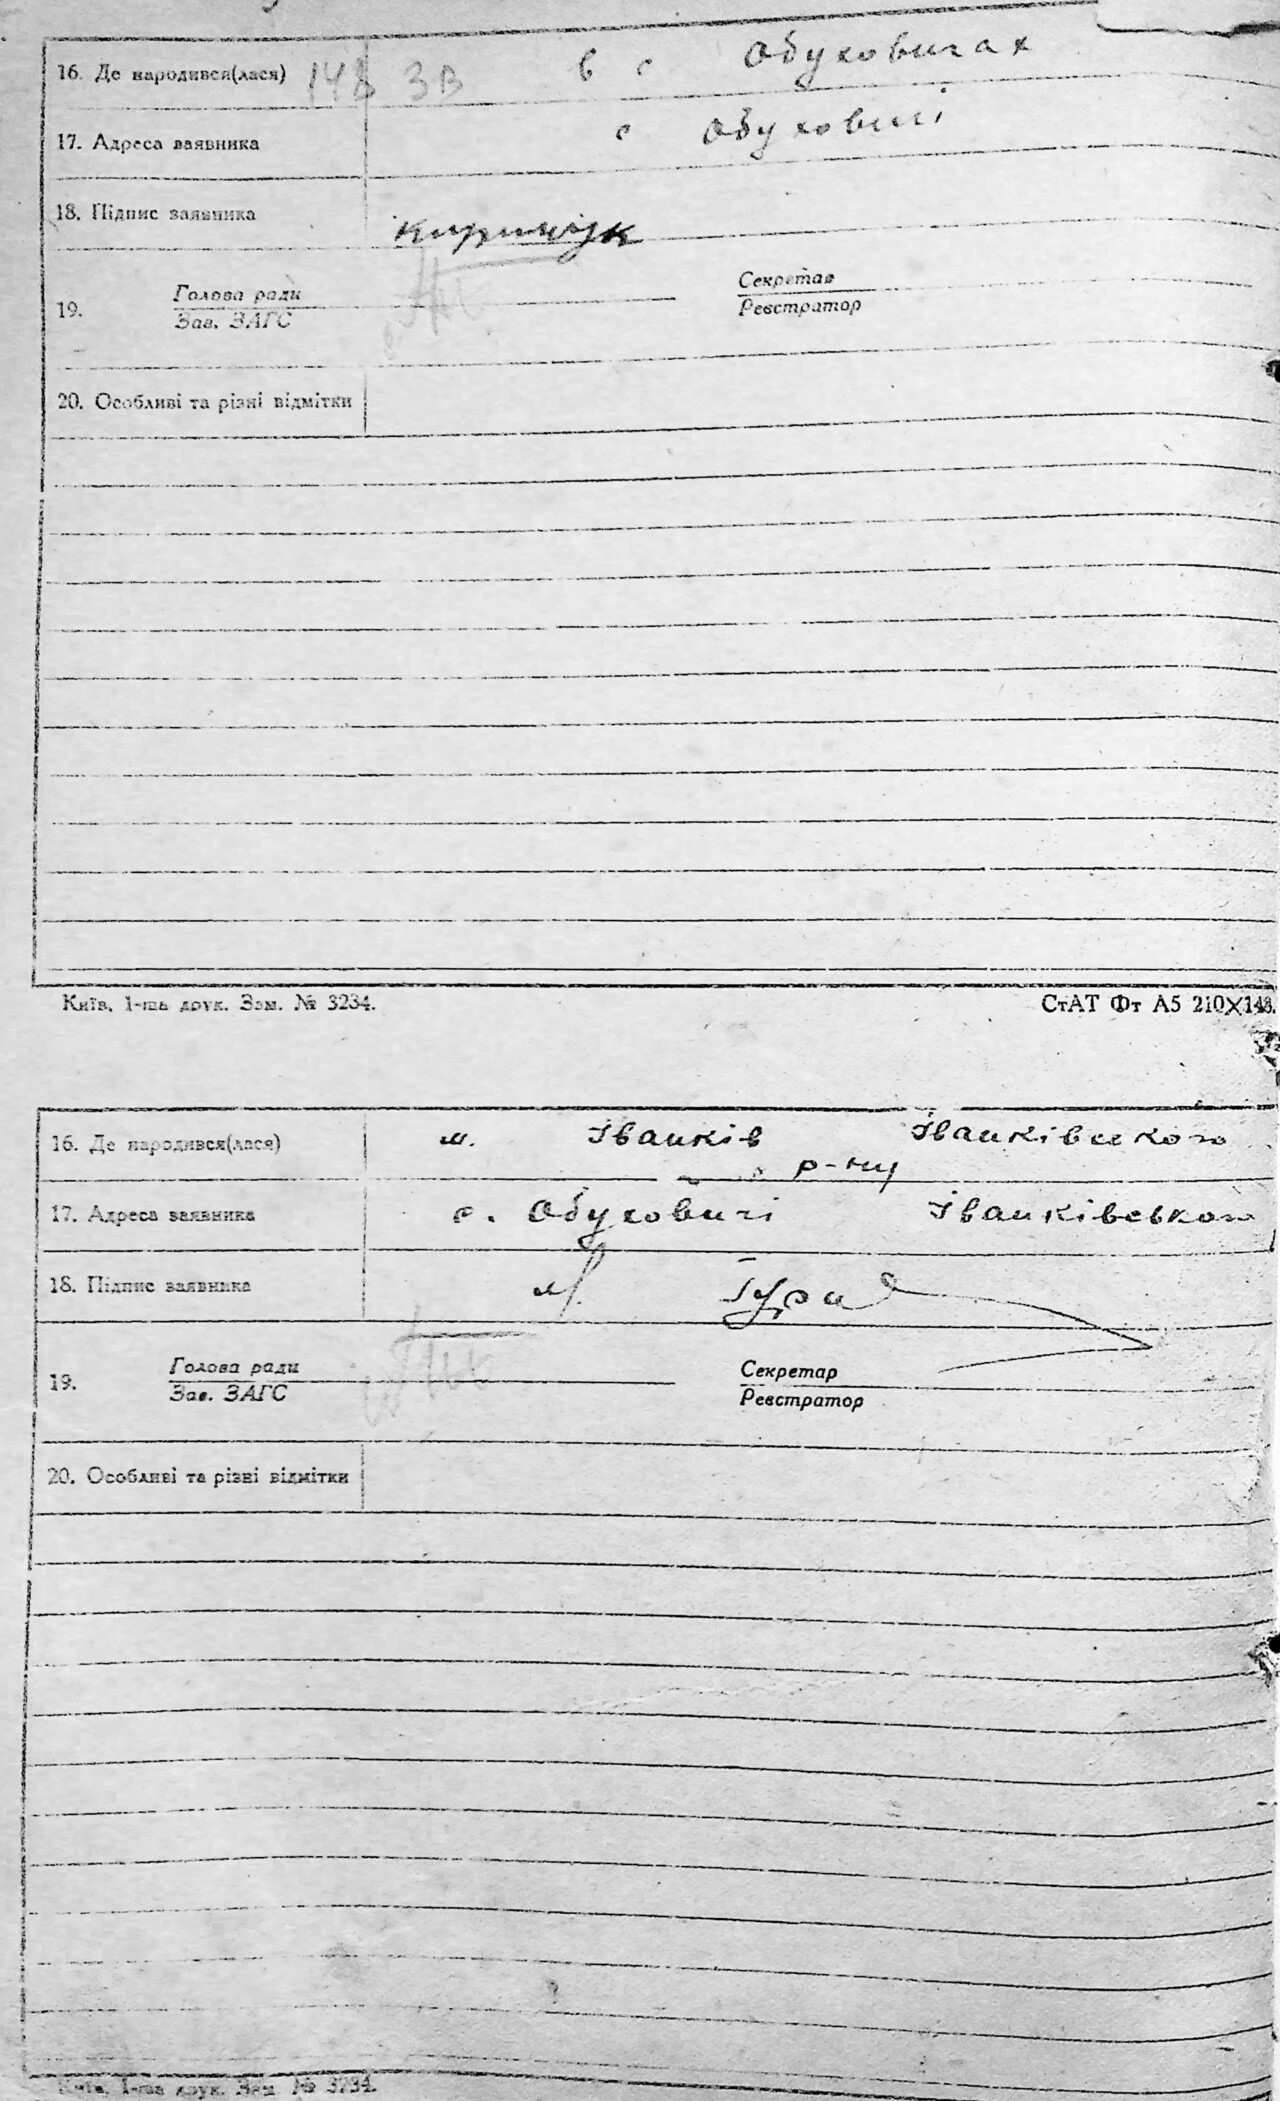 16. Де народився(лася) 148 ЗВ в с Обуховичах
17. Адреса заявника с Обуховичі
18. Підпис заявника Киринчук
19. Голова ради Секретар
Зав. ЗАГС Реєстратор
20. Особливі та різні відмітки
Київ, 1-ша друк. Зам. № 3234. СтАТ Фт А5 210×148.
16. Де народився(лася) м. Іванків Іванківського
р-ну
17. Адреса заявника с. Обуховичі Іванківського
18. Підпис заявника
19. Голова ради Секретар
Зав. ЗАГС Реєстратор
20. Особливі та різні відмітки
Київ, 1-ша друк. Зам. № 3234.